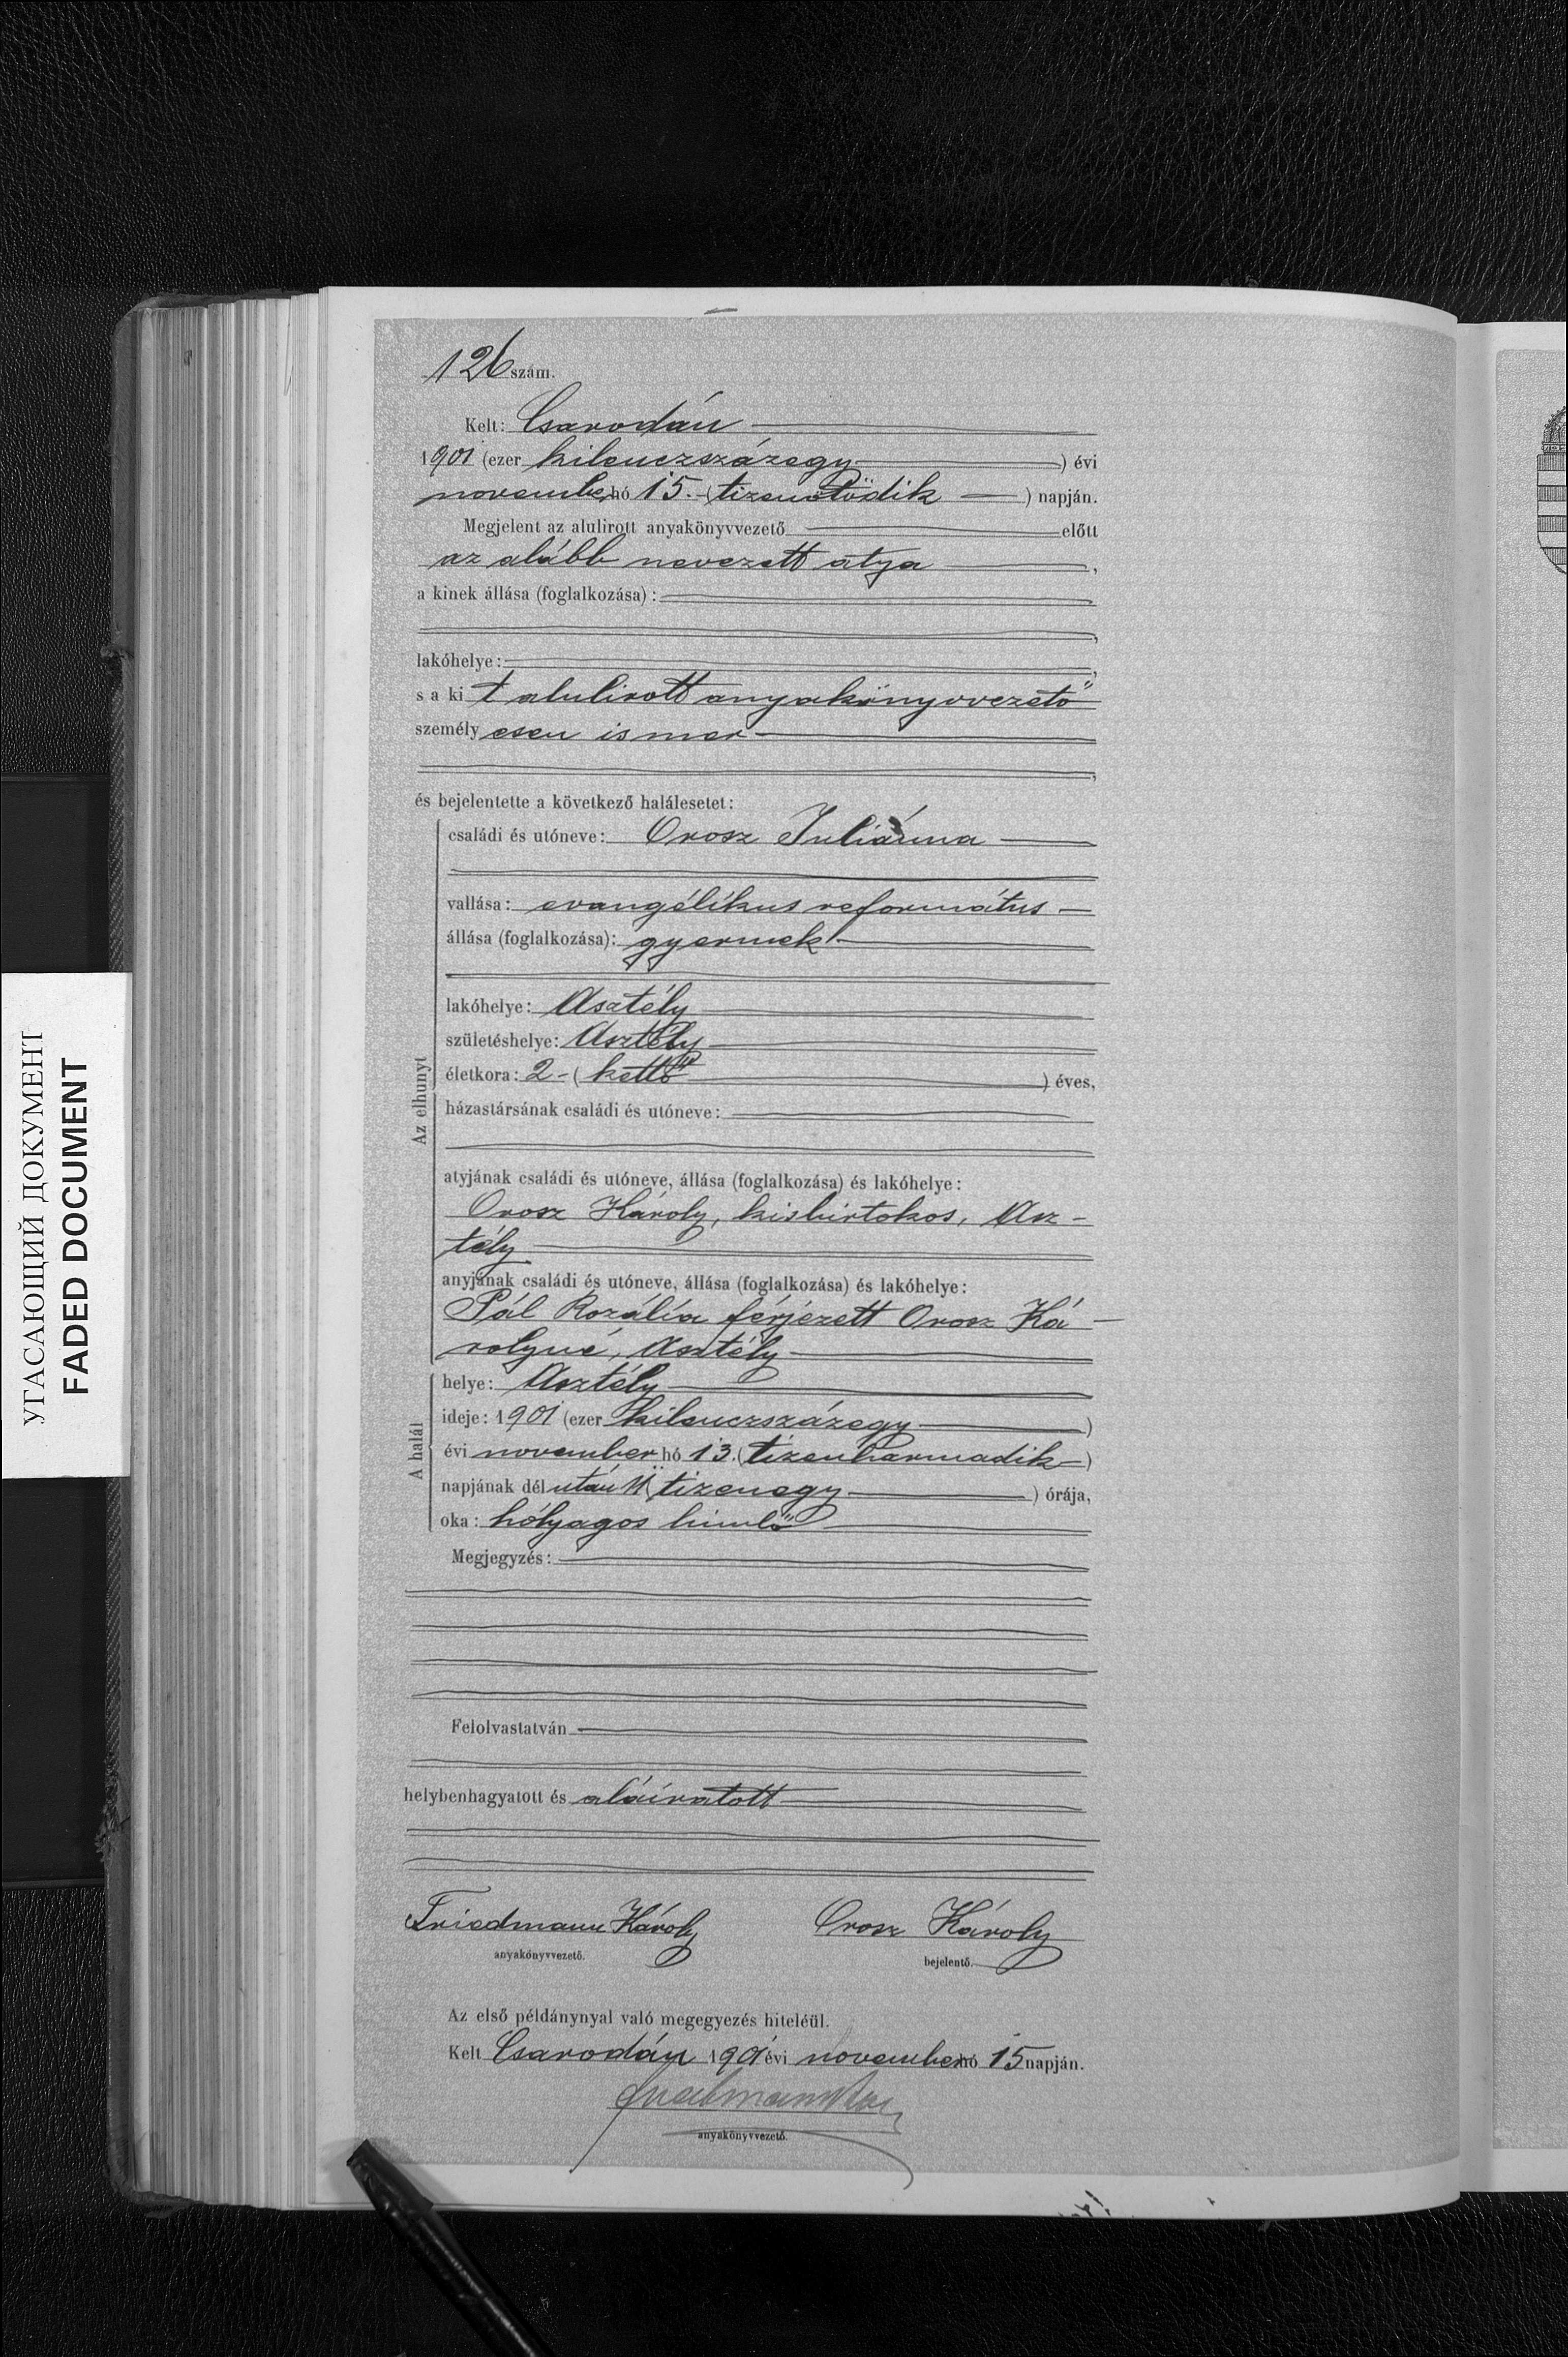 126 szám.
Kelt: Csarodán
1901 (ezer kilenczszázegy) évi
november hó 15. (tizenötödik) napján.
Megjelent az alulirott anyakönyvvezető előtt
az alább nevezett atya,
a kinek állása (foglalkozása):
lakóhelye:
s a kit alulirott anyakönyvvezető
személyesen ismer
és bejelentette a következő halálesetet:
Az elhunyt
családi és utóneve: Orosz Juliánna
vallása: evangélikus református
állása (foglalkozása): gyermek
lakóhelye: Asztély
születéshelye: Asztély
életkora: 2 - (kettő) éves,
házastársának családi és utóneve:
atyjának családi és utóneve, állása (foglalkozása) és lakóhelye:
Orosz Károly, kisbirtokos, Asz-
tély
anyjának családi és utóneve, állása (foglalkozása) és lakóhelye:
Pál Rozália férjezett Orosz Ká-
rolyné, Asztély
A halál
helye: Asztély
ideje: 1901 (ezer kilenczszázegy)
évi november hó 13. (tizenharmadik)
napjának délután 11 (tizenegy) órája,
oka: hólyagos himlő
Megjegyzés:
Felolvastatván
helybenhagyatott és aláiratott
Friedmann Károly Orosz Károly
anyakönyvvezető. bejelentő.
Az első példánynyal való megegyezés hiteléül.
Kelt Csarodán 1901 évi november hó 15 napján.
anyakönyvvezető.
УГАСАЮЩИЙ ДОКУМЕНТ
FADED DOCUMENT